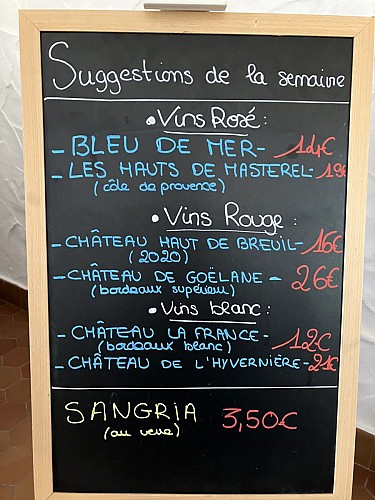 Suggestions de la semaine
• Vins Rosé :
- BLEU DE MER - 14€
- LES HAUTS DE MASTEREL - 19€
(côte de provence)
• Vins Rouge :
- CHÂTEAU HAUT DE BREUIL - 16€
(2020)
- CHÂTEAU DE GOËLANE - 26€
(bordeaux supérieur)
• Vins blanc :
- CHÂTEAU LA FRANCE - 12€
(bordeaux blanc)
- CHÂTEAU DE L'HYVERNIÈRE - 21€
SANGRIA 3,50€
(au verre)